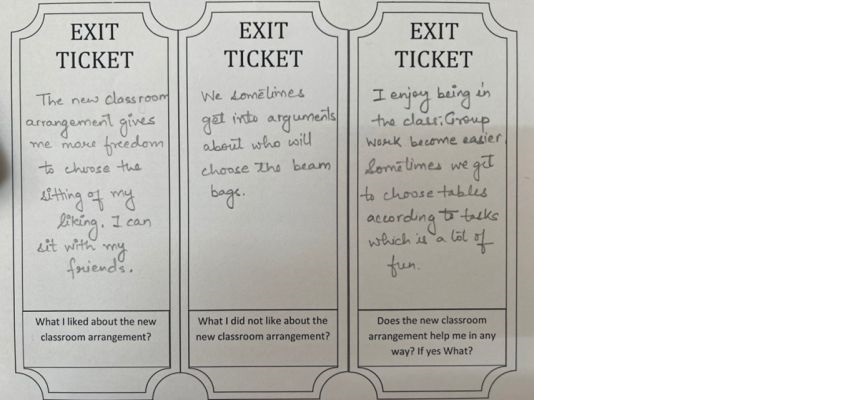 EXIT
TICKET
The new classroom
arrangement gives
me more freedom
to choose the
sitting of my
liking. I can
sit with my
friends.
What I liked about the new
classroom arrangement?
EXIT
TICKET
We sometimes
get into arguments
about who will
choose the beam
bags.
What I did not like about the
new classroom arrangement?
EXIT
TICKET
I enjoy being in
the class. Group
work become easier.
Sometimes we get
to choose tables
according to tasks
which is a lot of
fun.
Does the new classroom
arrangement help me in any
way? If yes What?